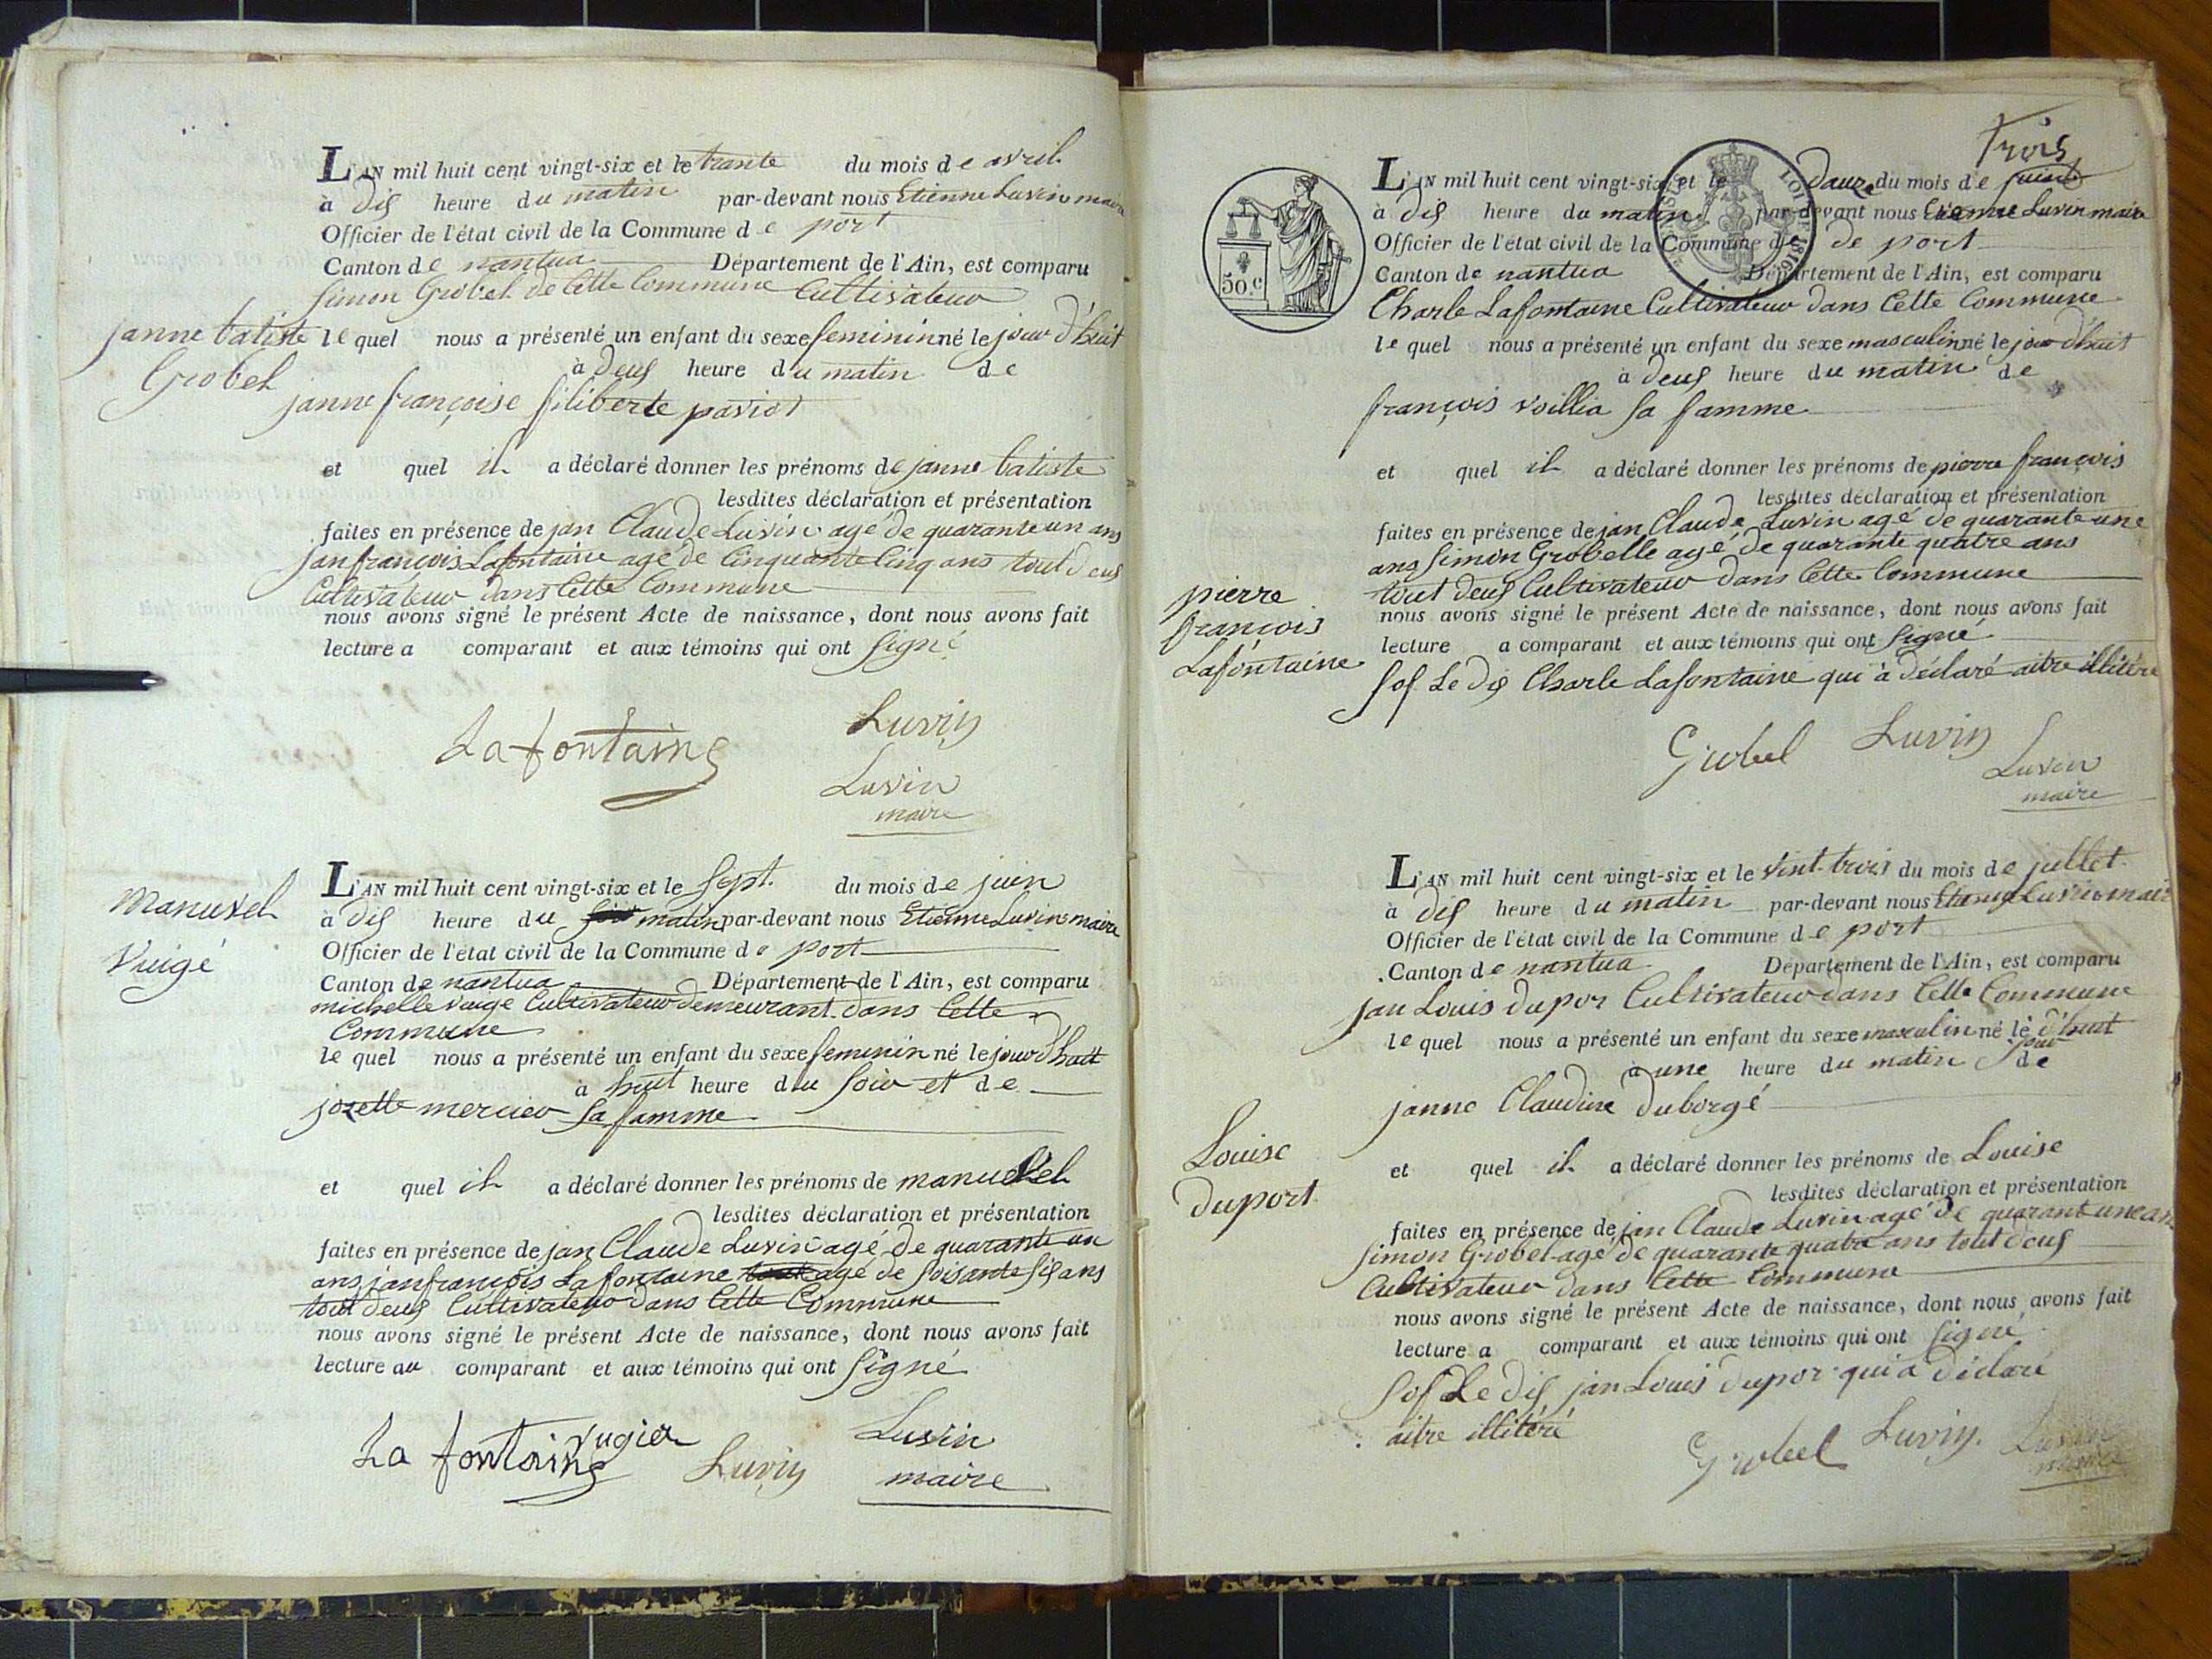 L'AN mil huit cent vingt-six et le trante du mois de avril
à dis heure du matin par-devant nous Etienne Luvin maire
Officier de l'état civil de la Commune de port
Canton de nantua Département de l'Ain, est comparu
Simon Grobel de Cette Commune Cultivateur
janne batiste
Grobel
le quel nous a présenté un enfant du sexe feminin né le jour d'huit
à deus heure du matin de
janne françoise filiberte paviot
et quel il a déclaré donner les prénoms de janne batiste
lesdites déclaration et présentation
faites en présence de jan Claude Luvin agé de quarante un ans
jan françois Lafontaine agé de Cinquante Cinq ans tout deus
Cultivateur dans Cette Commune
nous avons signé le présent Acte de naissance, dont nous avons fait
lecture a comparant et aux témoins qui ont Signé
La fontaine Luvin
Luvin
maire
Manuvel
Vuigé
L'AN mil huit cent vingt-six et le Sept. du mois de juin
à dis heure du soir matin par-devant nous Etienne Luvin maire
Officier de l'état civil de la Commune de port
Canton de nantua Département de l'Ain, est comparu
michelle vuige Cultivateur demeurant dans Cette
Commune
le quel nous a présenté un enfant du sexe feminin né le jour d'huit
à huit heure du Soir et de
jozette mercier Sa famme
et quel il a déclaré donner les prénoms de manuevel
lesdites déclaration et présentation
faites en présence de jan Claude Luvin agé de quarante un
ans jan françois Lafontaine agé de Soisante Sis ans
tout deus Cultivateur dans Cette Commune
nous avons signé le présent Acte de naissance, dont nous avons fait
lecture au comparant et aux témoins qui ont Signé
La fontaine vugier Luvin Luvin
maire
trois
L'AN mil huit cent vingt-six et le douze du mois de juin
à dis heure du matin par-devant nous Etienne Luvin maire
Officier de l'état civil de la Commune de de port
Canton de nantua Département de l'Ain, est comparu
50.c
LOI DE 1816
Charle Lafontaine Cultivateur dans Cette Commune
le quel nous a présenté un enfant du sexe masculin né le jour d'huit
à deus heure du matin de
françois voillia Sa famme
et quel il a déclaré donner les prénoms de pierre françois
lesdites déclaration et présentation
faites en présence de jan Claude Luvin agé de quarante une
ans Simon Grobelle agé de quarante quatre ans
tout deus Cultivateur dans Cette Commune
pierre
françois
Lafontaine
nous avons signé le présent Acte de naissance, dont nous avons fait
lecture a comparant et aux témoins qui ont Signé
Sof Le dis Charle Lafontaine qui à déclaré aitre illitéré
Grobel Luvin Luvin
maire
L'AN mil huit cent vingt-six et le vint-trois du mois de jullet
à dis heure du matin par-devant nous Etienne Luvin maire
Officier de l'état civil de la Commune de port
Canton de nantua Département de l'Ain, est comparu
jan Louis dupor Cultivateur dans Cette Commune
le quel nous a présenté un enfant du sexe masculin né le jour d'huit
à une heure du matin de
janne Claudine duborgé
Louise
duport
et quel il a déclaré donner les prénoms de Louise
lesdites déclaration et présentation
faites en présence de jan Claude Luvin agé de quarant une ans
Simon Grobel agé de quarante quatre ans tout deus
Cultivateur dans Cette Commune
nous avons signé le présent Acte de naissance, dont nous avons fait
lecture a comparant et aux témoins qui ont Signé
Sof Le dis jan Louis dupor qui à déclaré
aitre illitéré
Grobel Luvin Luvin
maire